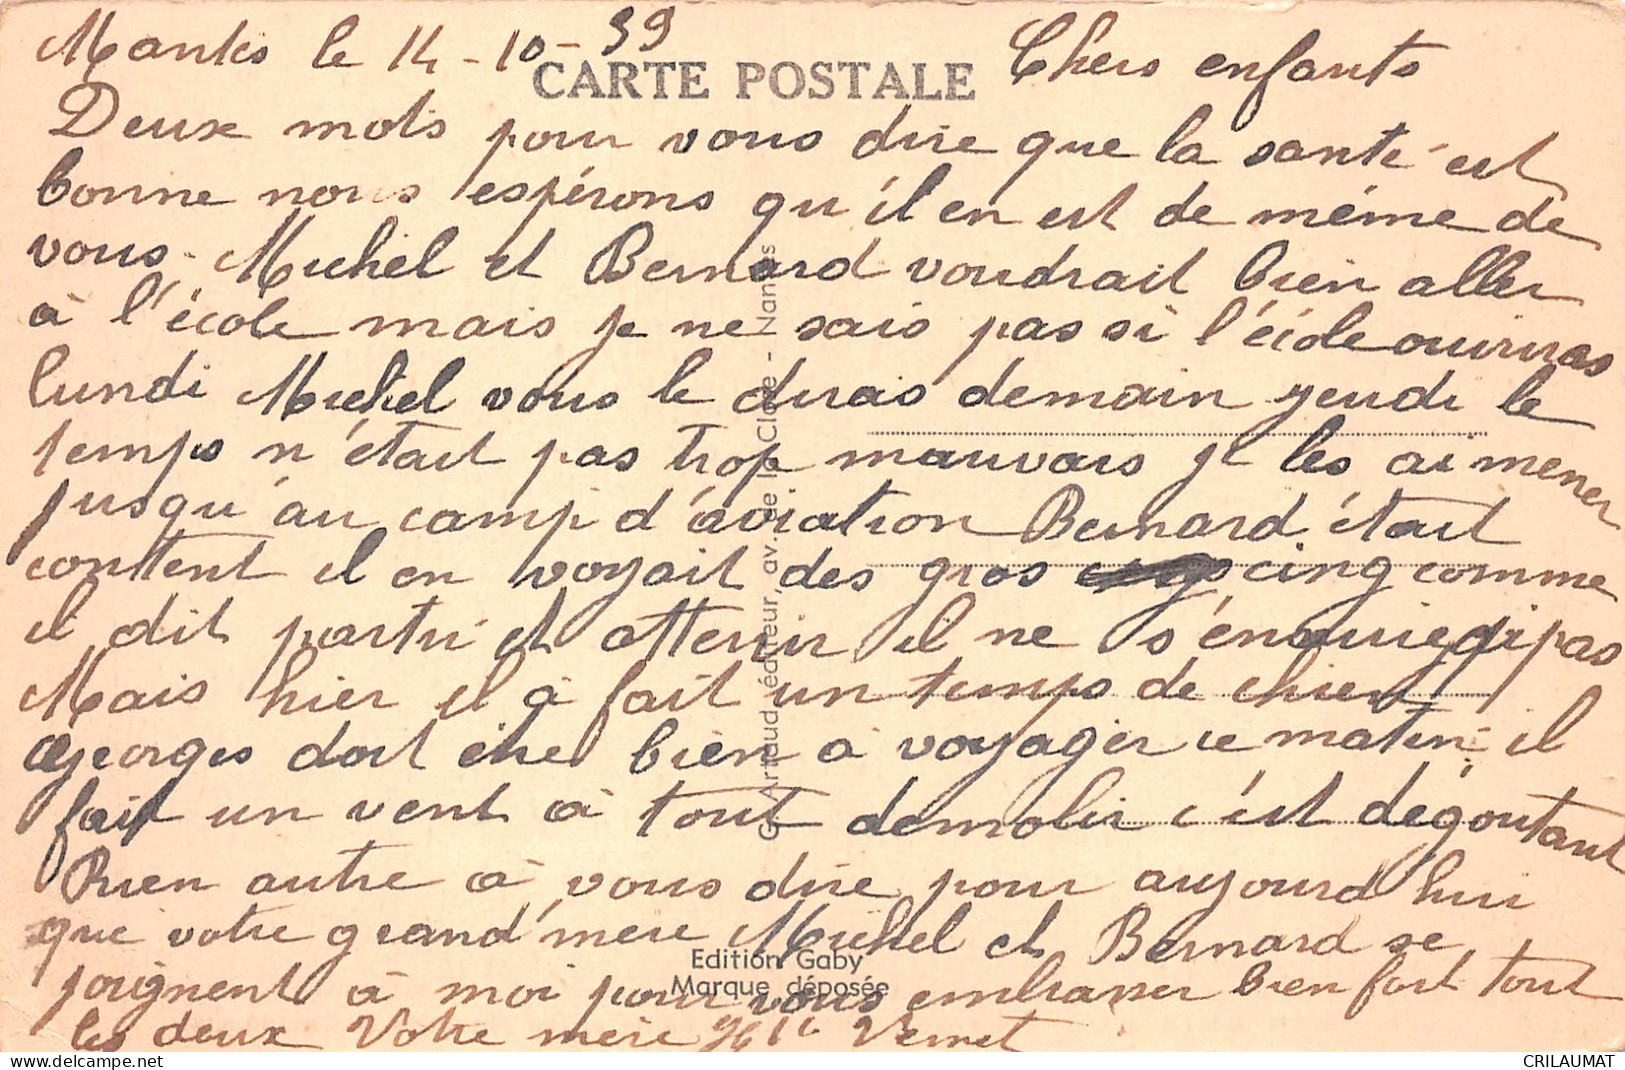 le 14-10-39 Chers enfants
CARTE POSTALE
Deux mots pour vous dire que la santé est
bonne nous espérons qu'il en est de même de
vous. Michel et Bernard voudrait bien aller
à l'école mais je ne sais pas si l'école ouvriras
lundi Michel vous le diras demain jeudi le
temps n'était pas trop mauvais je les ai mener
jusqu'au camp d'aviation Bernard était
content il en voyait des gros cing comme
il dit partir et atterir il ne s'énnuiegi pas
Mais hier il à fait un temps de chien
Georges doit être bien à voyager ce matin il
fait un vent à tout demolir c'est dégoutant
Rien autre à vous dire pour aujourd hui
que votre grand'mère Michel et Bernard se
joignent à moi pour vous embrasser bien fort tout
les deux Votre mère Vernet
G. Artaud, éditeur, av. de la Close - Nantes
Edition Gaby
Marque déposée
CRILAUMAT
delcampe.net